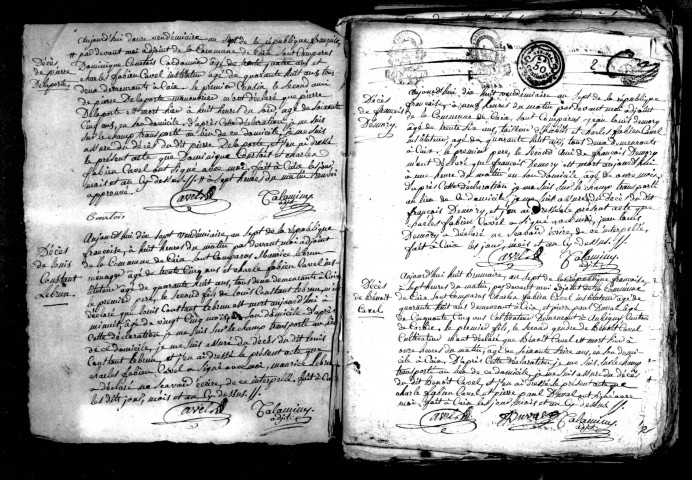 Décès
de pierre
Delaporte.
Aujourd'hui douze vendémiaire an sept de la république française,
pardevant moi adjoint de la Commune de Caix sont Comparus
Dominique Courtois Cordonnier âgé de trente quatre ans et
charles fabien Cavel instituteur âgé de quarante huit ans, tous
deux demeurants à Caix, le premier Cousin, le second ami
de pierre Delaporte manouvrier m'ont déclaré que pierre
Delaporte est mort hier à huit heures du soir, âgé de soixante
Cinq ans, en son domicile, d'après Cette déclaration, je me suis
sur le champ transporté au lieu de ce domicile, je me suis
assuré du décès du dit pierre Delaporte, et j'en ai dressé
le présent acte que dominique Courtois et charles
fabien Cavel ont signé avec moi, fait à Caix les jour,
mois et an Cy dessus
approuvé
Cavel
Calaminy
Courtois
Décès
de Louis
Constant
Lebrun.
Aujourd'hui dix sept vendémiaire, an sept de la république
française, à huit heures du matin, par devant moi adjoint
de la Commune de Caix sont Comparus Maurice Lebrun
ménager âgé de trente Cinq ans et charles fabien Cavel insti-
tuteur âgé de quarante huit ans, tous deux demeurants à Caix
le premier père, le second ami de Louis Constant Lebrun, m'ont
déclaré que Louis Constant Lebrun est mort aujourd'hui à
minuit, âgé de vingt Cinq mois, en son domicile, D'après
Cette déclaration je me suis sur le champ transporté au lieu
de ce domicile, je me suis assuré du décès du dit Louis
Constant Lebrun, et j'en ai dressé le présent acte que
charles fabien Cavel a signé avec moi, maurice Lebrun
a déclaré ne savoir écrire, de ce interpellé, fait à Caix
les dits jour, mois et an Cy dessus
Cavel
Calaminy
adjt.
2
50
Décès
de françois
Demory.
Aujourd'hui dix huit vendémiaire an sept de la république
française, à neuf heures du matin, par devant moi adjoint
de la Commune de Caix, sont Comparus jean Louis Demory
âgé de trente six ans, tailleur d'habits et charles fabien Cavel
instituteur, âgé de quarante huit ans, tous deux demeurants
à Caix, le premier père, le second ami de françois Demory
m'ont déclaré que françois Demory est mort aujourd'hui
à une heure du matin en son domicile, âgé de onze mois,
D'après cette déclaration je me suis sur le champ transporté
au lieu de ce domicile, je me suis assuré du Décès du dit
françois Demory, et j'en ai dressé le présent acte que
charles fabien Cavel a signé avec moi, jean Louis
Demory a déclaré ne savoir écrire, de ce interpellé,
fait à Caix les jour, mois et an Cy dessus
Cavel
Calaminy
adjt.
Décès
de Benoit
Cavel
Aujourd'hui huit Brumaire, an sept de la république française,
à sept heures du matin, par devant moi adjoint de la Commune
de Caix, sont Comparus Charles fabien Cavel instituteur âgé de
quarante huit ans demeurant à Caix, et pierre paul Duval âgé
de Cinquante Cinq ans Cultivateur Demeurant à Aubigny Canton
de Corbie, le premier fils, le second gendre de Benoit Cavel
Cultivateur m'ont déclaré que Benoit Cavel est mort hier à
onze heures du matin, âgé de soixante seize ans, en son domi-
cile à Caix. D'après Cette déclaration, je me suis sur le champ
transporté au lieu de ce domicile, je me suis assuré du Décès
du dit Benoit Cavel, et j'en ai dressé le présent acte que
charles fabien Cavel et pierre paul Duval ont signé avec
moi, fait à Caix les jour, mois et an Cy dessus
Cavel
Duval
Calaminy
adjt.